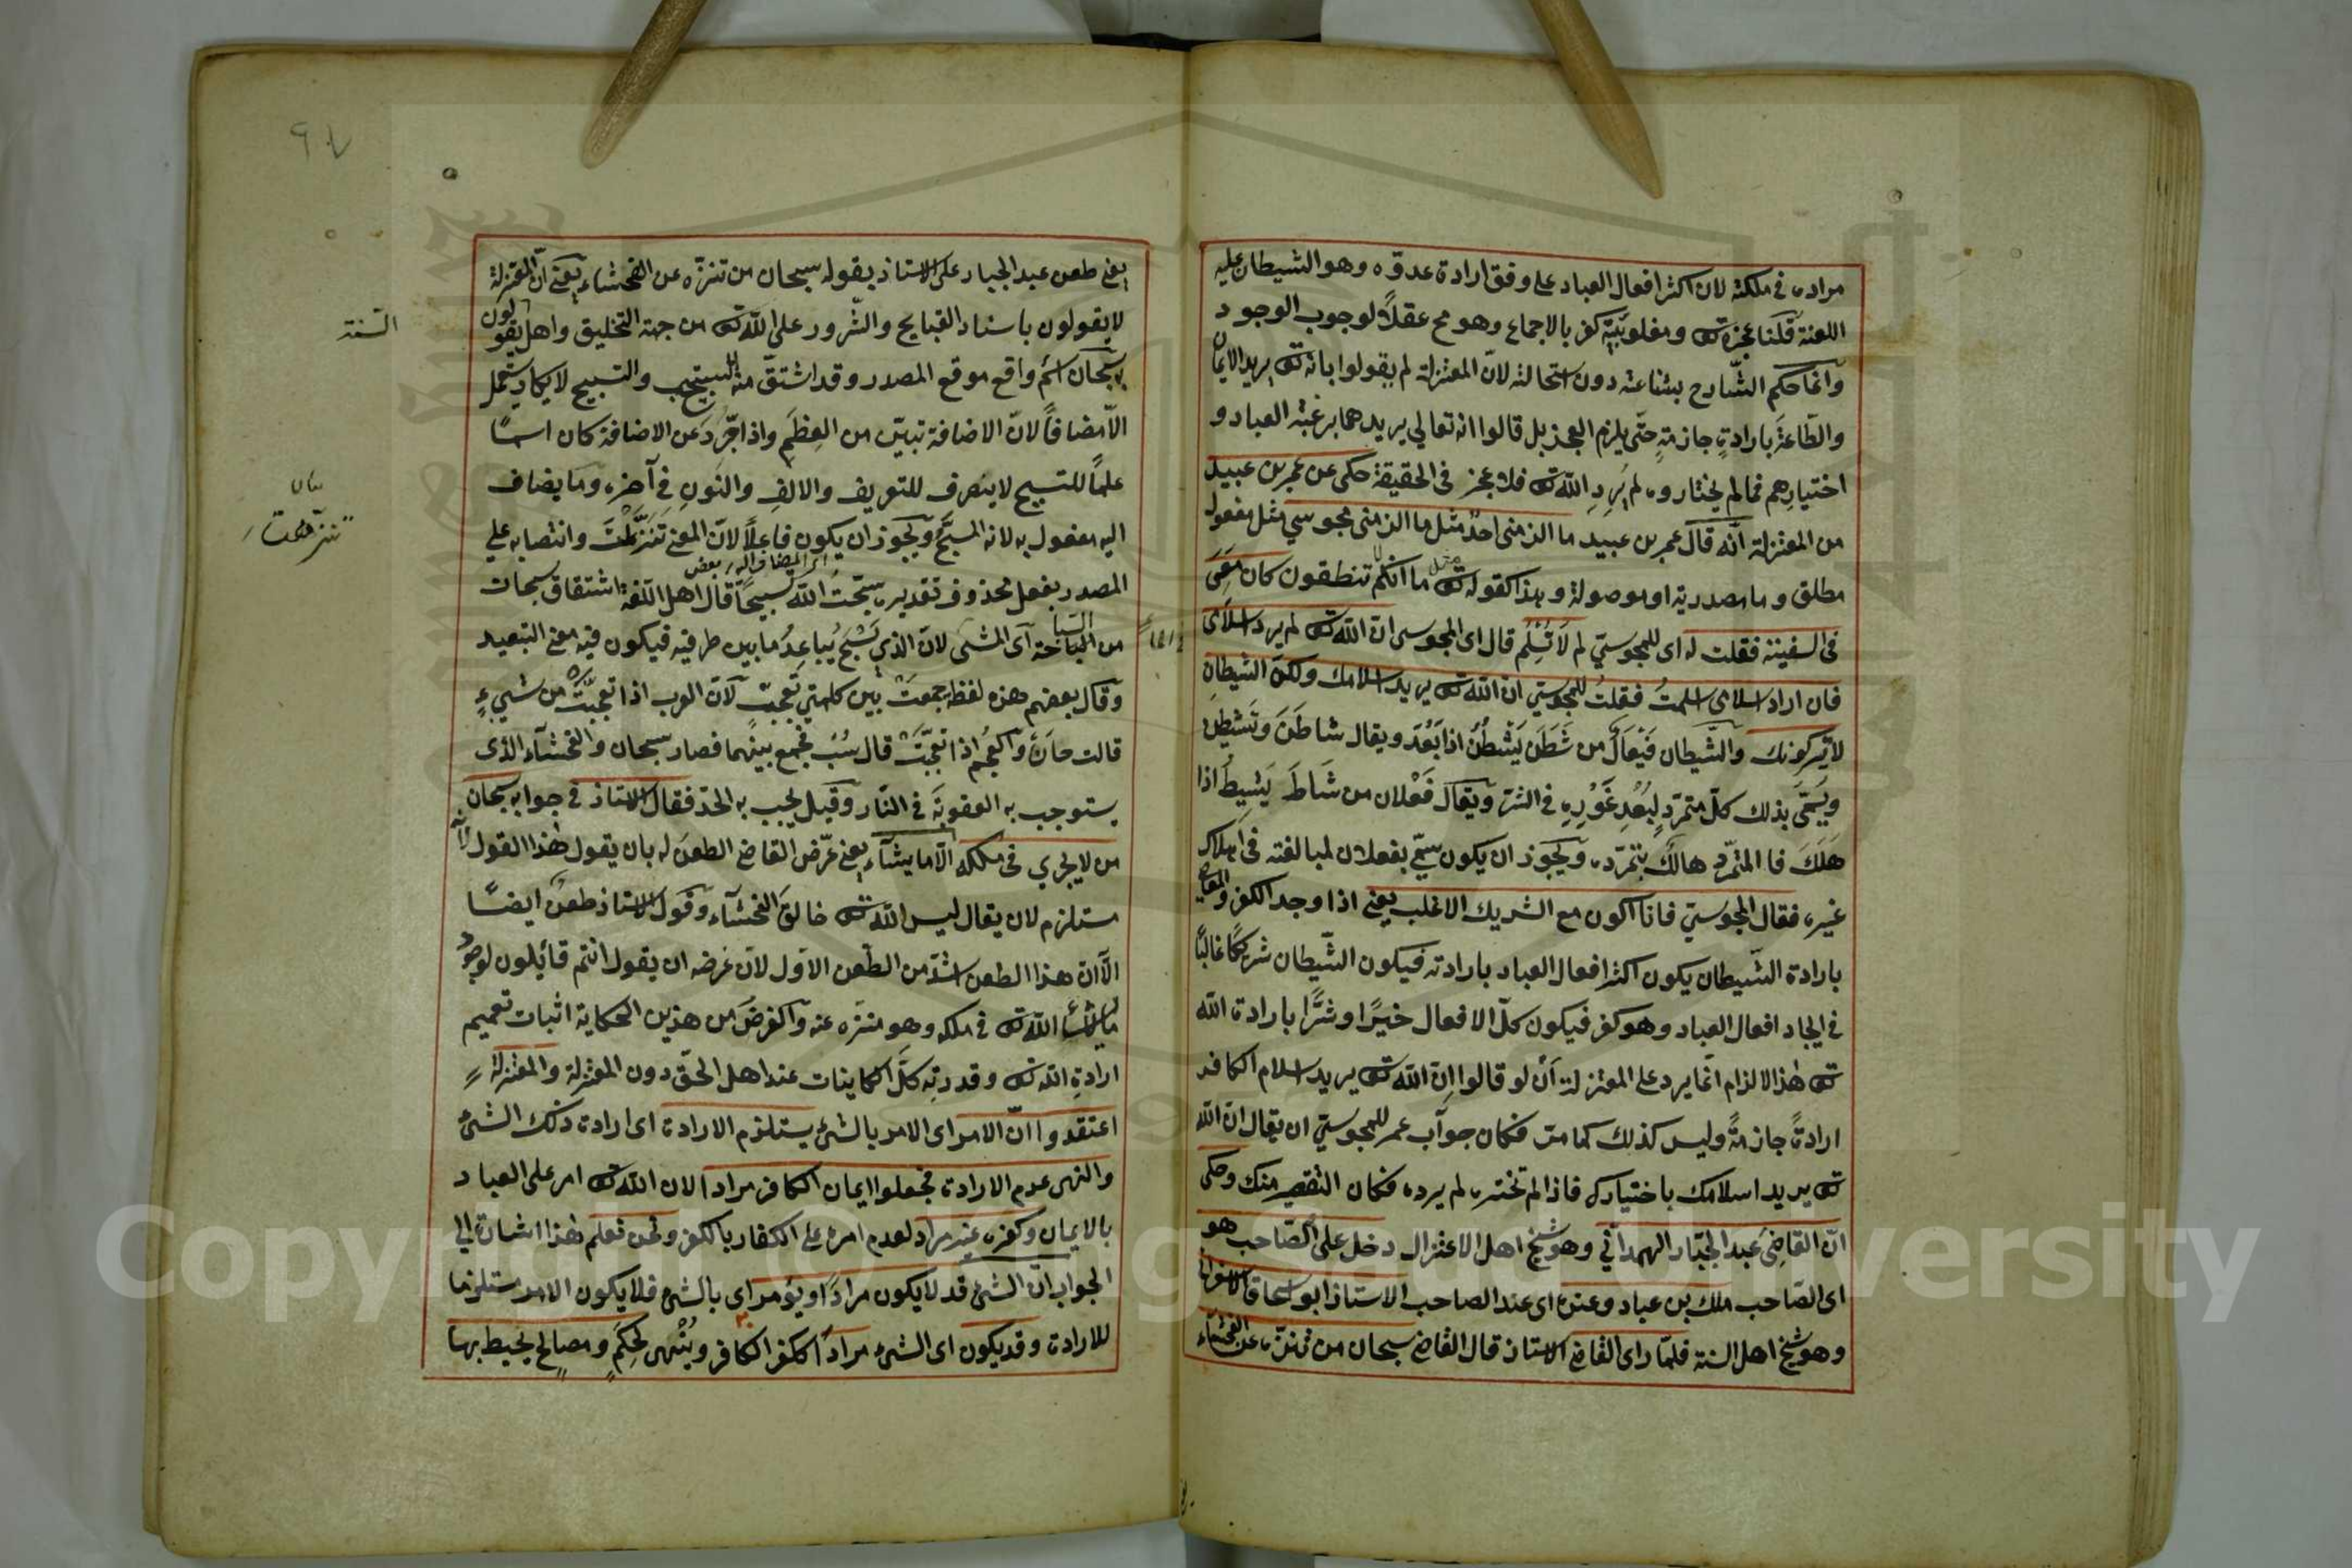 مراده في ملكته لان اكثر افعال العباد على وفق ارادة عدوّه وهو الشيطان عليه
اللعنة قلنا عجزه تع ومغلوبيّته كفر بالاجماع وهو مح عقلاً لوجوب الوجود
وانما حكم الشّارح بشناعته دون استحالته لانّ المعتزلة لم يقولوا بانه تع يريد الايمان
والطّاعة بارادةٍ جازمةٍ حتّى يلزم العجز بل قالوا انه تعالى يريدهما برغبة العباد و
اختيارهم فما لم يختاروه لم يُرِدِ الله تع فلا عجز في الحقيقة حكى عن عمر بن عبيد
من المعتزلة انّه قال عمر بن عبيد ما الزمنى احدٌ مثل ما الزمنى مجوسي مثل مفعول
مطلق وما مصدرية او موصولة وهذا كقوله تع مثل ما انكم تنطقون كان معى
فى السفينة فقلت له اى للمجوسيّ لم لا تُسْلِمُ قال اى المجوسى انّ الله تع لم يرد اسلامى
فان اراد اسلامى اسلمتُ فقلتُ للمجوسيّ انّ الله تع يريد اسلامك ولكنّ الشيطان
لا يتركونك والشّيطان فَيْعَالٌ من شَطَنَ يَشْطُنُ اذا بَعُدَ ويقال شاطَنَ وتَشَيْطَنَ
ويُسَمَّى بذلك كلّ متمرّدٍ لِبُعْدِ غَوْرِهِ في الشرّ ويقال فَعْلان من شَاطَ يَشِيطُ اذا
هَلَكَ فا المتمرّد هالكٌ بتمرّده ويجوز ان يكون سمّي بفعلان لمبالغته في اهلاك
غيره فقال المجوسيّ فانا اكون مع الشريك الاغلب يعنى اذا وجد الكفر والمعاصي
بارادة الشّيطان يكون اكثر افعال العباد بارادته فيكون الشّيطان شريكًا غالبًا
في ايجاد افعال العباد وهو كفر فيكون كلّ الافعال خيرًا وشرًّا بارادة الله
تع هذا الالزام انّما يرد على المعتزلة أن لو قالوا اِنّ الله تع يريد اسلام الكافر
ارادةً جازمةً وليس كذلك كما مرّ فكان جواب عمر للمجوسيّ ان يقال انّ الله
تع يريد اسلامك باختيارك فاذا لم تختره لم يرده فكان التقصير منك وحكى
انّ القاضى عبد الجبّار الهمدانّي وهو شيخ اهل الاعتزال دخل على الصّاحب هو
اى الصّاحب ملك بن عباد وعنده اى عند الصاحب الاستاذ ابو اسحاق الاسفرائني
وهو شيخ اهل السنة فلمّا راى القاضى الاستاذ قال القاضى سبحان من تنزّه عن الفحشاء
٩٧
يعنى طعن عبد الجبار على الاستاذ بقوله سبحان من تنزّه عن الفحشاء يعنى انّ المعتزلة
لا يقولون باسناد القبايح والشّرور على الله تع من جهة التخليق واهل السّنة يقولون
سبحان اسم واقع موقع المصدر وقد اشتقّ منه التسبيح والتسبيح لا يكاد يستعمل
الاّ مضافاً لانّ الاضافة تبيّن من العِظَمِ واذا جُرّد عن الاضافة كان اسمًا
علماً للتسبيح لا ينصرف للتعريف والالف والنون في آخره وما يضاف
اليه مفعول به لانه المسبَّح ويجوز ان يكون فاعلاً لانّ المعنى تَنَزَّهْتَ وانتصابه على
المصدر بفعل محذوف تقديره سبّحتُ الله تسبيحاً قال بعض اهل اللّغة اشتقاق سبحان
من السّباحة اى المشى لانّ الذي يَسْبَحُ يُباعِدُ ما بين طرفيه فيكون فيه معنى التبعيد
وقال بعضهم هذه لفظة جمعَتْ بين كلمتي تعجّبٍ لانّ العرب اذا تعجّبتْ من شيءٍ
قالت حان والعجم اذا تعجّبَتْ قال سُبْ فجمع بينهما فصار سبحان والفحشآء الذى
يستوجب به العقوبة في النّار وقيل يجب به الحدّ فقال الاستاذ في جوابه سبحان
من لا يجري في ملكه الاّ ما يشآء يعنى عرّض القاضى الطعن له بان يقول هذا القول لانه
مستلزم لان يقال ليس الله تع خالق الفحشآء وقول الاستاذ طعن ايضًا
الاّ انّ هذا الطعن اشدّ من الطّعن الاوّل لانّ غرضه ان يقول انتم قائلون لوجود
ما لا يشاء الله تع في ملكه وهو منزّه عنه والغرض من هذين الحكاية اثبات تعميم
ارادةِ الله تع وقدرته كلّ الكاينات عند اهل الحقّ دون المعتزلة والمعتزلة
اعتقدوا انّ الامر اى الامر بالشئ يستلزم الارادة اى ارادة ذلك الشئ
والنهى عدم الارادة فجعلوا ايمان الكافر مرادا لان الله تع امر على العباد
بالايمان وكفره غير مراد لعدم امره على الكفار بالكفر ونحن نعلم هذا اشارة الى
الجواب انّ الشئ قد لا يكون مراداً ويؤمر اى بالشئ فلا يكون الامر مستلزما
للارادة وقد يكون اى الشئ مراداً ككفر الكافر ويُنْهى لِحِكَمٍ ومصالح يحيط بها
السّنة
بيان
تنزّهت